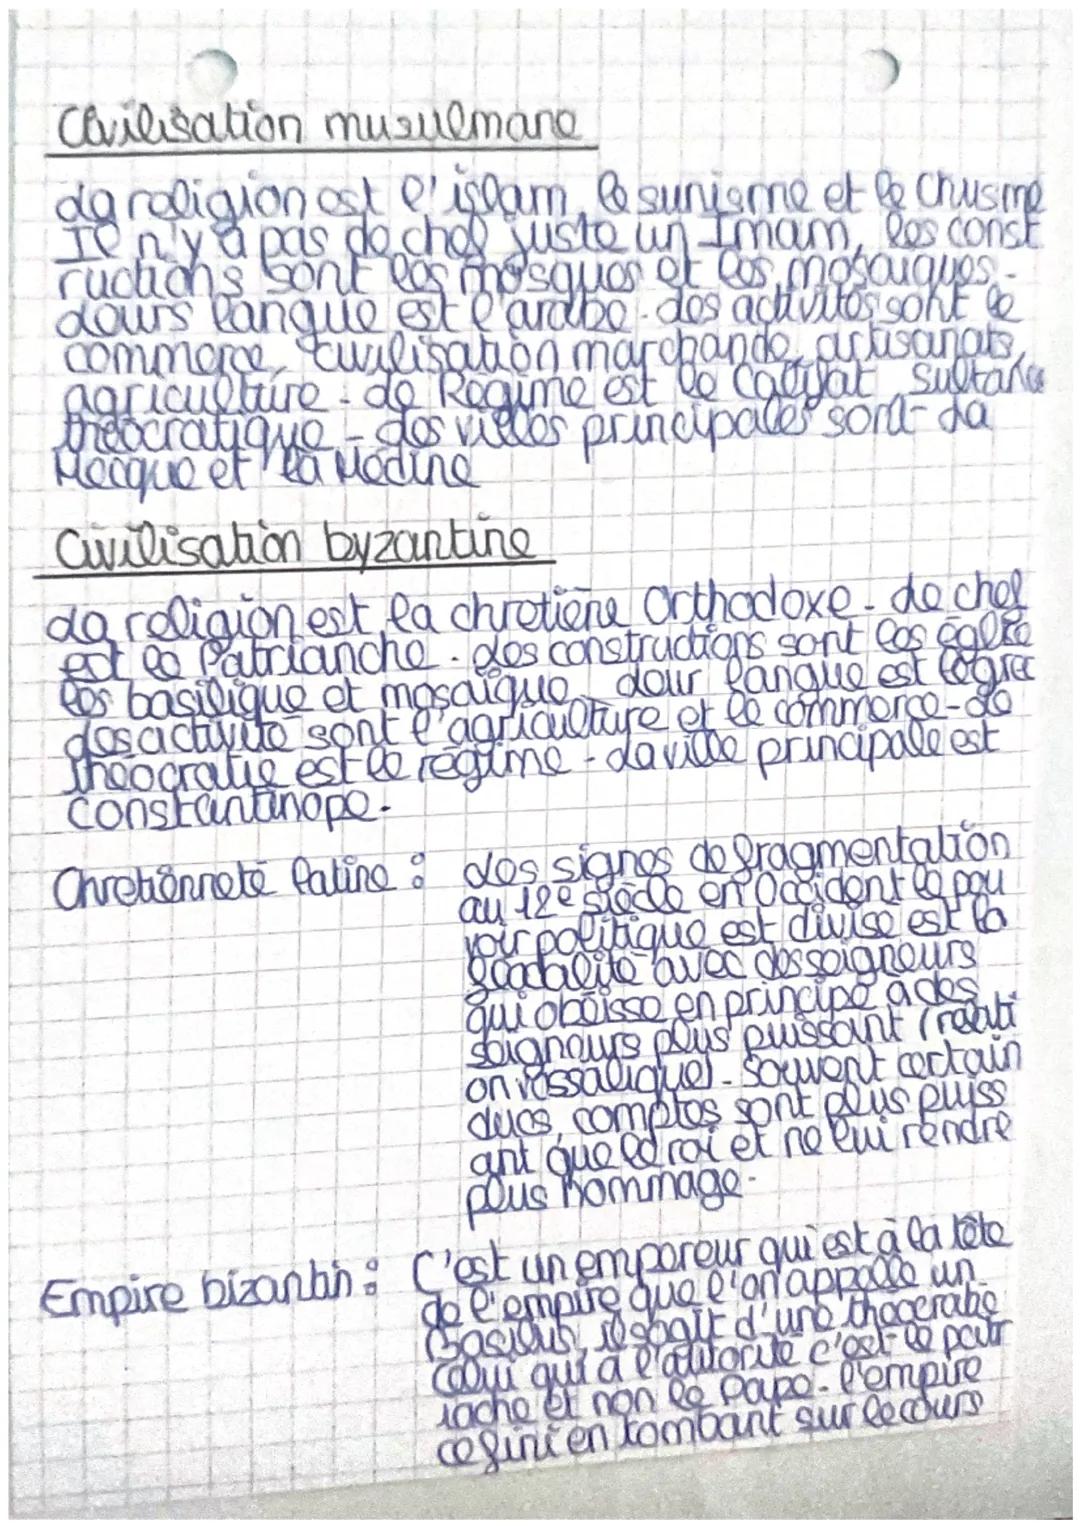 Civilisation musulmane
La religion est l'islam, le sunisme et le Chiisme
Il n'y a pas de chef juste un Imam, les const
ructions sont les mosques et les mosaiques.
Leurs langue est l'arabe. Les activités sont le
commerce, civilisation marchande, artisanats,
agriculture. Le Régime est le Califat Sultana
théocratique - Les villes principales sont La
Mecque et la Médine
Civilisation byzantine
La religion est la chretiène Orthodoxe. Le chef
est le Patrianche. Les constructions sont les église
les basilique et mosaïque, Leur langue est le grec
Les activité sont l'agriculture et le commerce - Le
théocratie est le régime - La ville principale est
Constantinope.
Chretiénneté latine : Les signes de fragmentation
au 12e siècle en Occident le pou
voir politique est divise est la
féodalité avec des seigneurs
qui obéisse en principe a des
seigneurs plus puissant (relati
on vassalique). Souvent certain
ducs, comptes sont plus puiss
ant que le roi et ne lui rendre
plus hommage.
Empire bizantin : C'est un empereur qui est à la tête
de l'empire que l'on appelle un
Basilus, il sagit d'une
celui qui a l'autorité c'est le patr
iache et non le Pape. l'empire
ce fini en tombant sur le cours